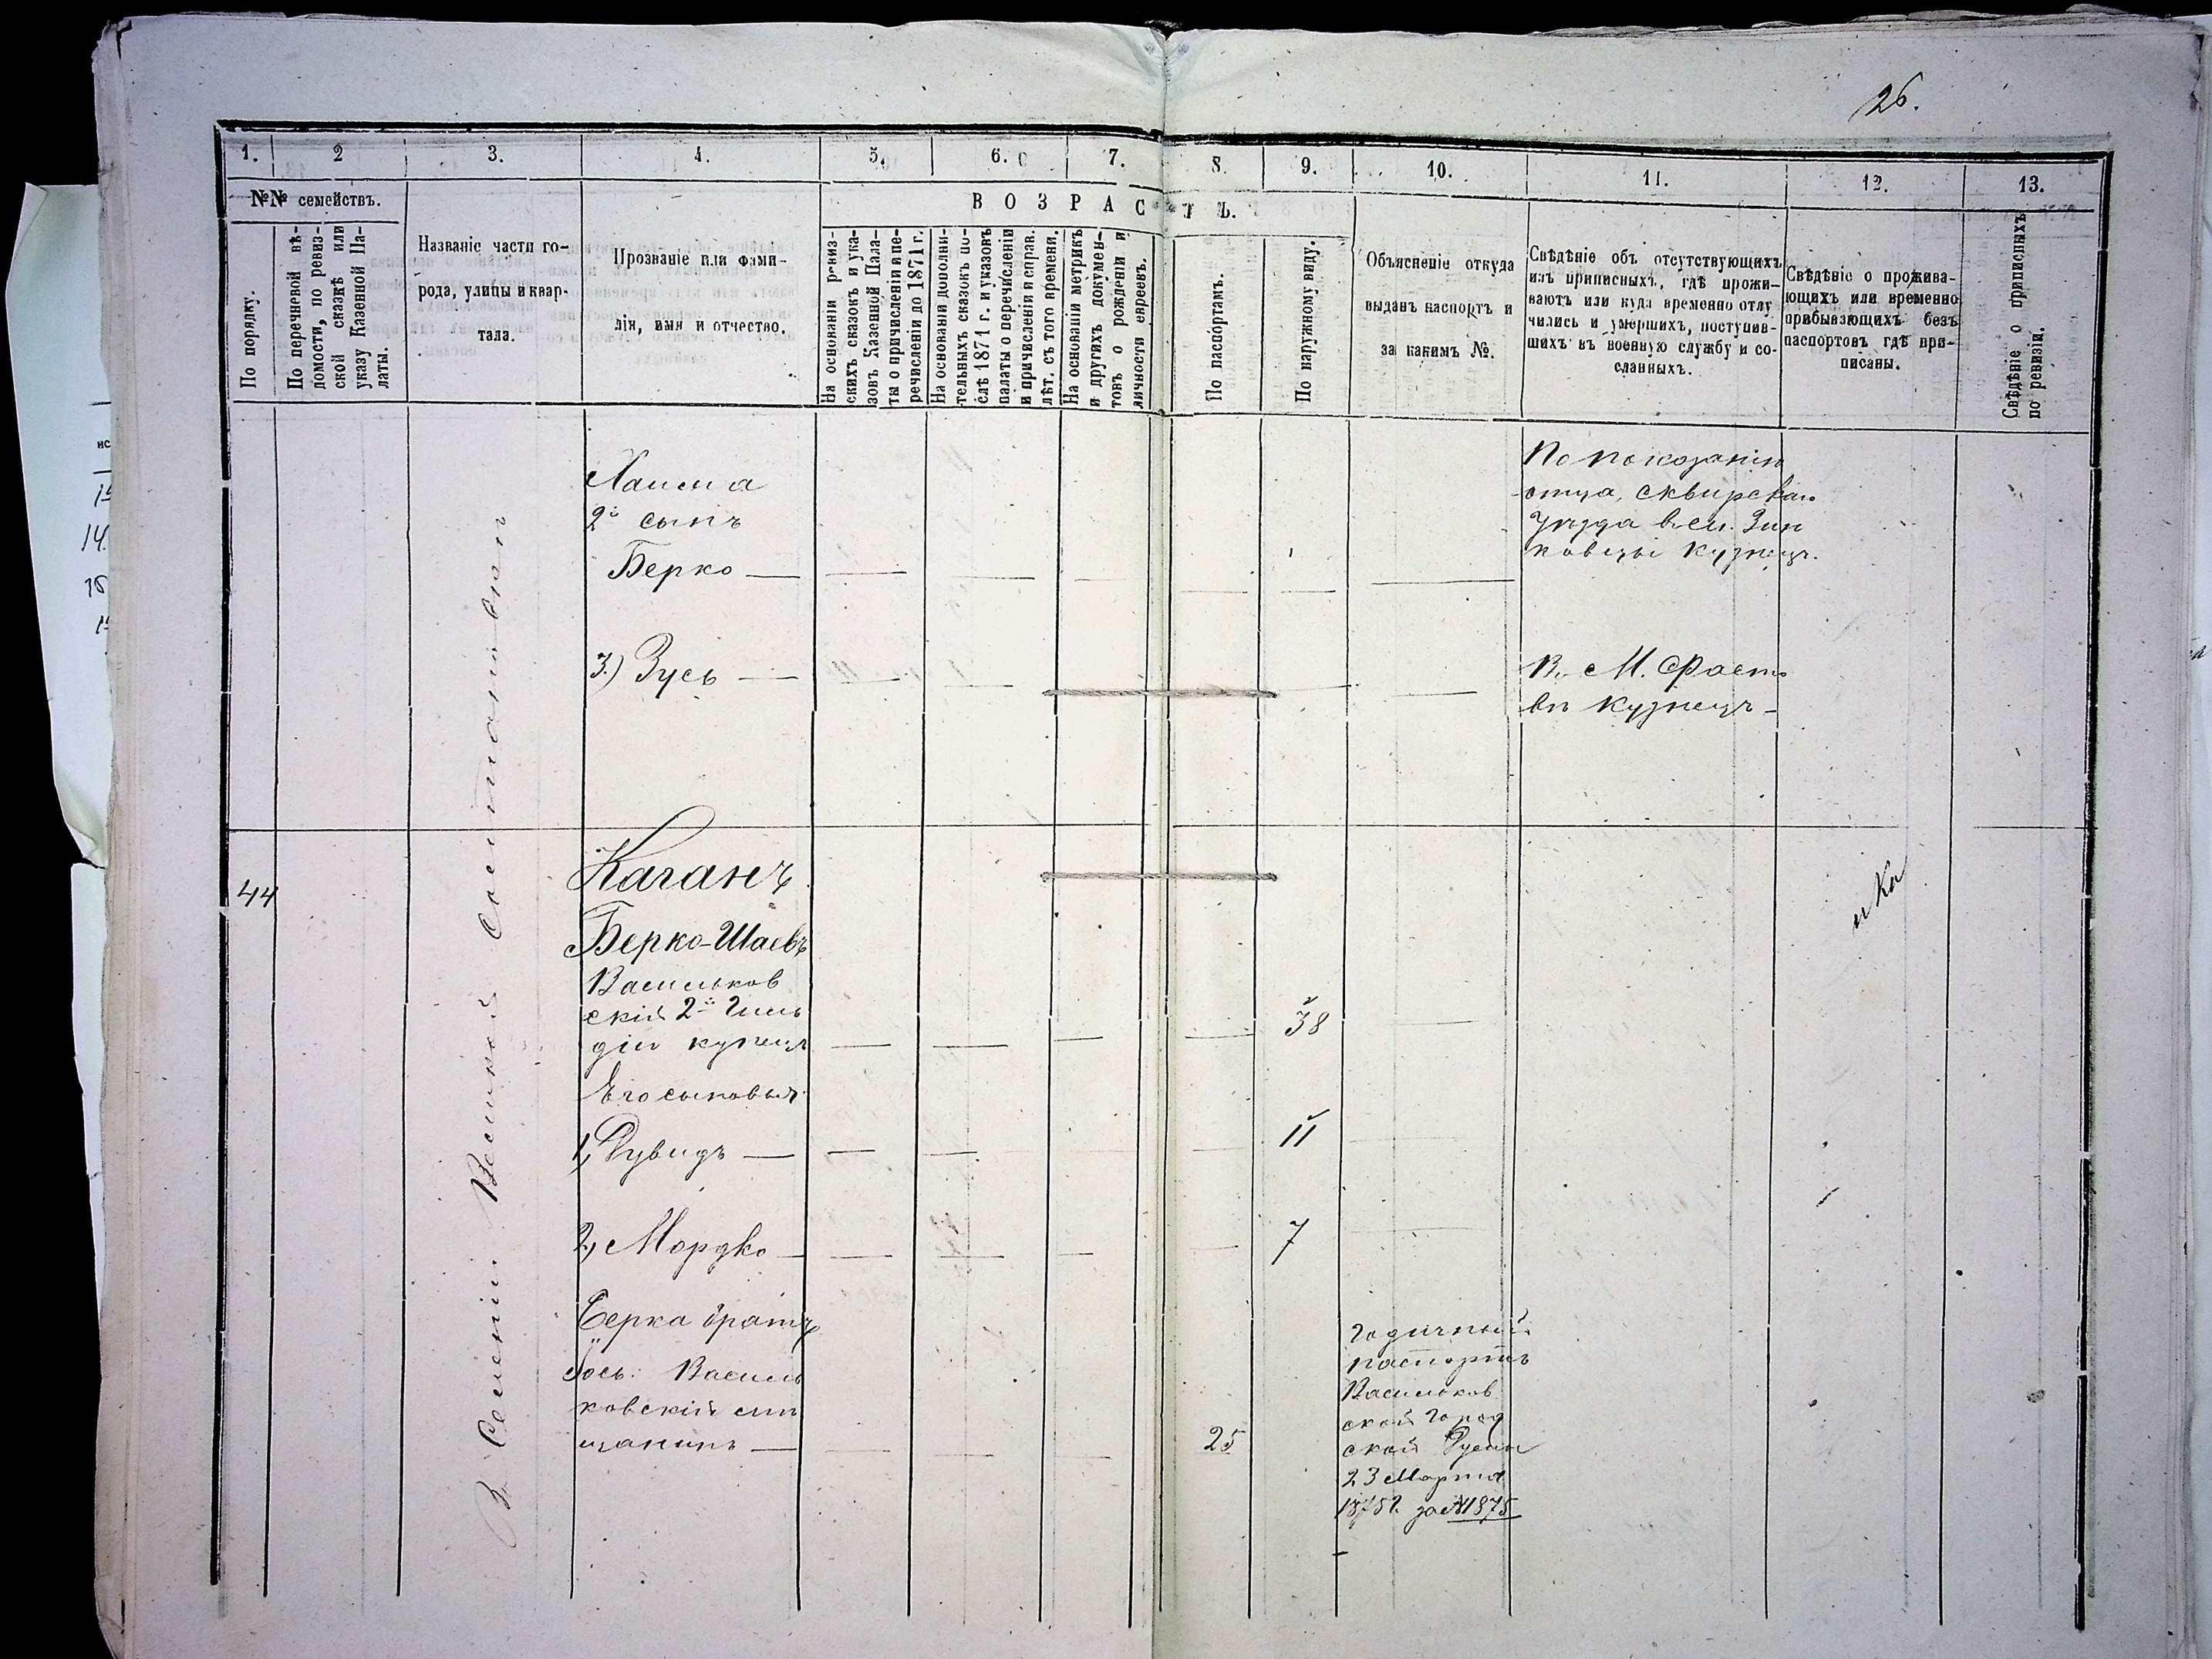 26.
1.
2
3.
4.
5.
6.
7.
8.
9.
10.
11.
12.
13.
№№ семействъ.
ВОЗРАСТЪ.
По порядку.
По перечневой вѣ-
домости, по ревиз-
ской сказкѣ или
указу Казенной Па-
латы.
Названіе части го-
рода, улицы и квар-
тала.
Прозваніе или фами-
лія, имя и отчество.
На основаніи ревиз-
скихъ сказокъ и ука-
зовъ Казенной Пала-
ты о причисленіи и пе-
речисленіи до 1871 г.
На основаніи дополни-
тельныхъ сказокъ по-
слѣ 1871 г. и указовъ
палаты о перечисленіи
и причисленіи и справ.
лѣт. съ того времени.
На основаніи метрикъ
и другихъ докумен-
товъ о рожденіи и
личности евреевъ.
По паспортамъ.
По наружному виду.
Объясненіе откуда
выданъ паспортъ и
за какимъ №.
Свѣдѣніе объ отсутствующихъ
изъ приписныхъ, гдѣ прожи-
ваютъ или куда временно отлу
чились и умершихъ, поступив-
шихъ въ военную службу и со-
сланныхъ.
Свѣдѣніе о прожива-
ющихъ или временно
прибывающихъ безъ
паспортовъ гдѣ при-
писаны.
Свѣдѣніе о приписныхъ
по ревизіи.
Хаима
2й сынъ
Берко —
По показанію
отца, сквирскаго
уѣзда в сел. Зин
ковцы кузнецъ.
3.) Зусь —
В. М. Фаст
вѣ кузнецъ -
В Селеніи Великой Салтановкѣ
44
Каганъ
Берко-Шаевъ
Васильков
скій 2й Гиль
діи купецъ
38
Его сыновья:
1, Дувидъ —
11
2, Мордко —
7
Берка братъ
Іось: Василь
ковскій мѣ
щанинъ —
25
Годичный
паспортъ
Васильков
ской город
ской Думы
23 Марта
1875г. за №1875